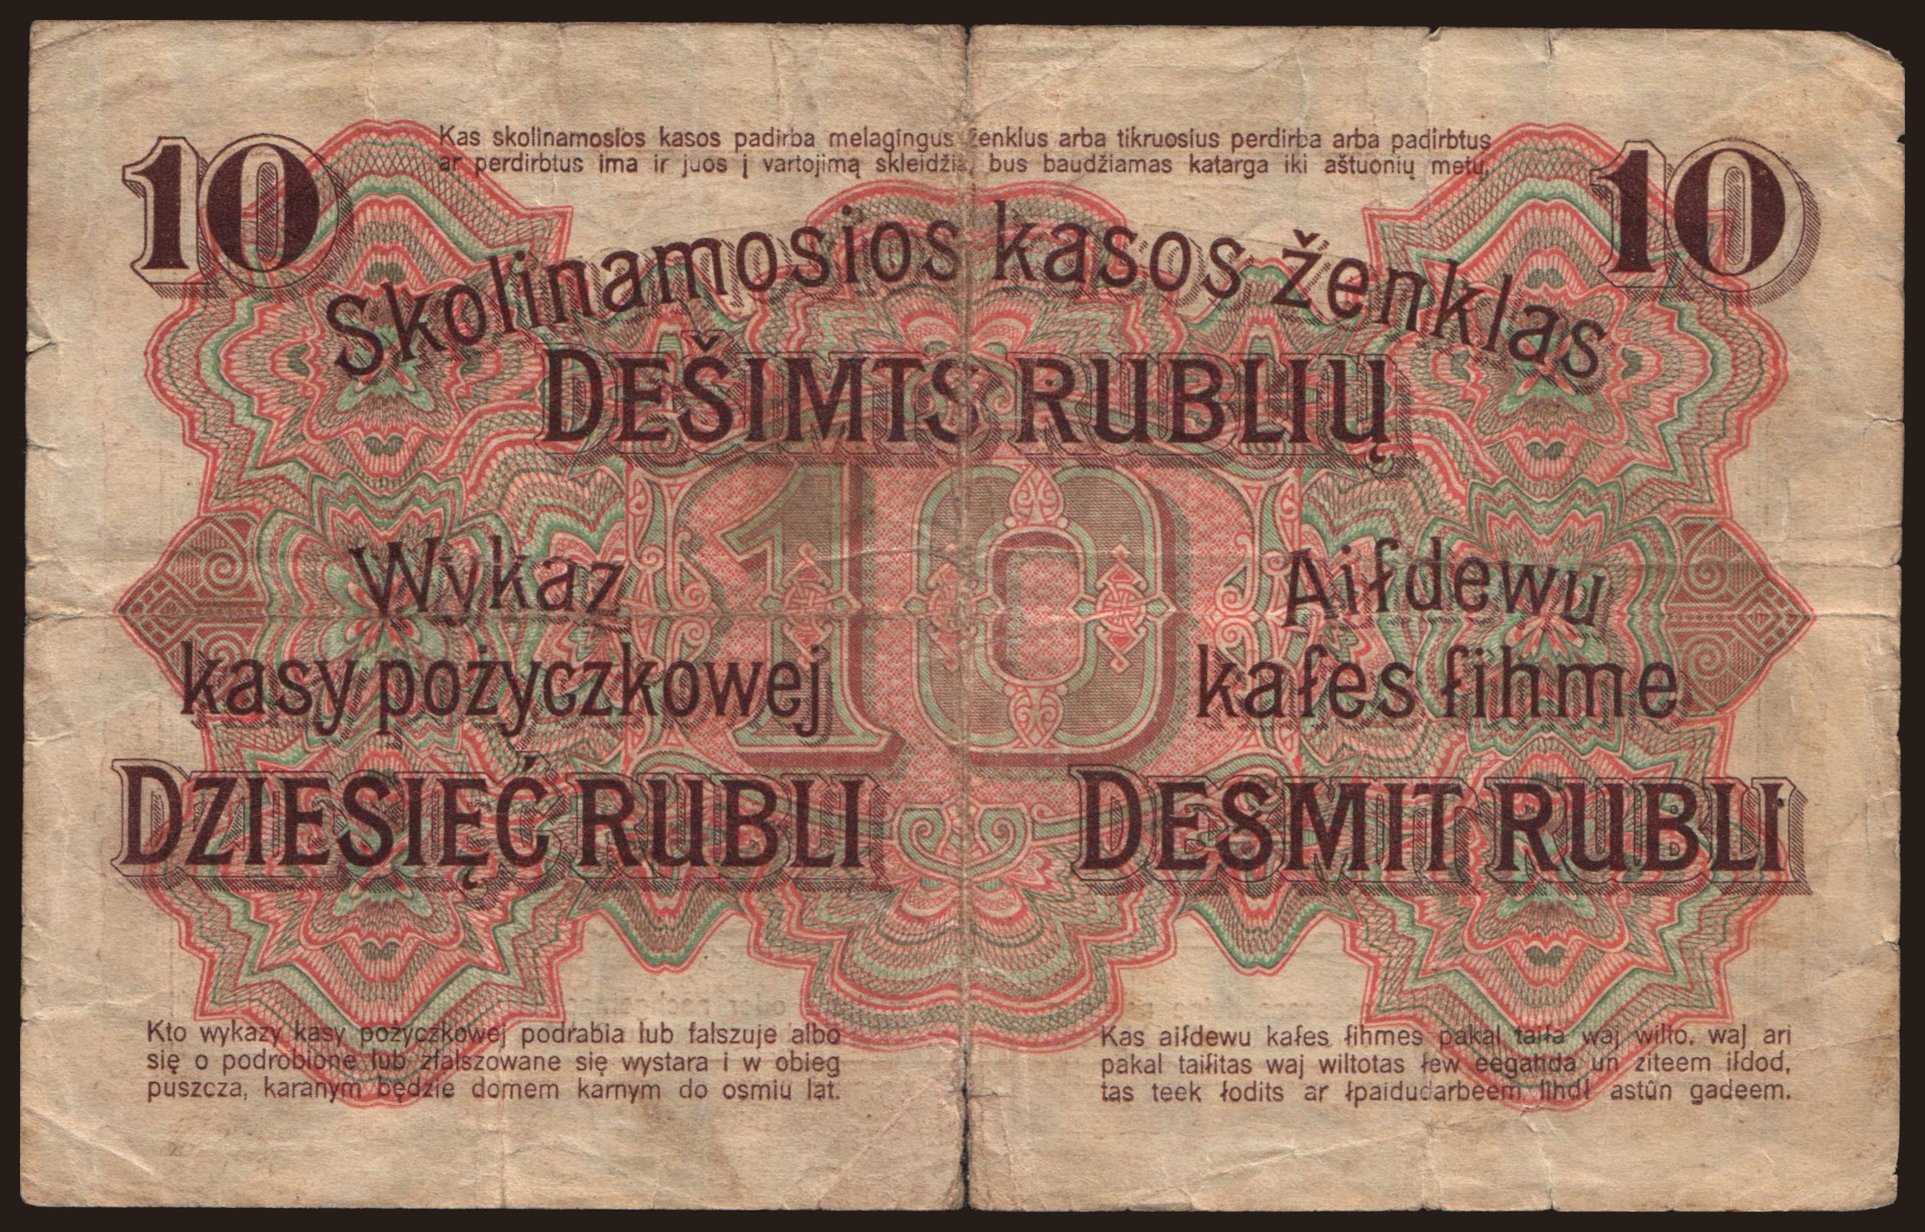 Kas skolinamosios kasos padirba melagingus ženklus arba tikruosius perdirba arba padirbtus
ar perdirbtus ima ir juos į vartojimą skleidžia, bus baudžiamas katarga iki aštuonių metų.
10
10
Skolinamosios kasos ženklas
DEŠIMTS RUBLIŲ
10
Wykaz
kasy pożyczkowej
DZIESIĘĆ RUBLI
Aiłdewu
kałes łihme
DESMIT RUBLI
Kto wykazy kasy pożyczkowej podrabia lub falszuje albo
się o podrobione lub zfalszowane się wystara i w obieg
puszcza, karanym będzie domem karnym do osmiu lat.
Kas aiłdewu kałes łihmes pakał taiła waj wilto, waj ari
pakał taiłitas waj wiltotas łew eeganda un ziteem iłdod,
tas teek łodits ar łpaidudarbeem lihdł astûn gadeem.